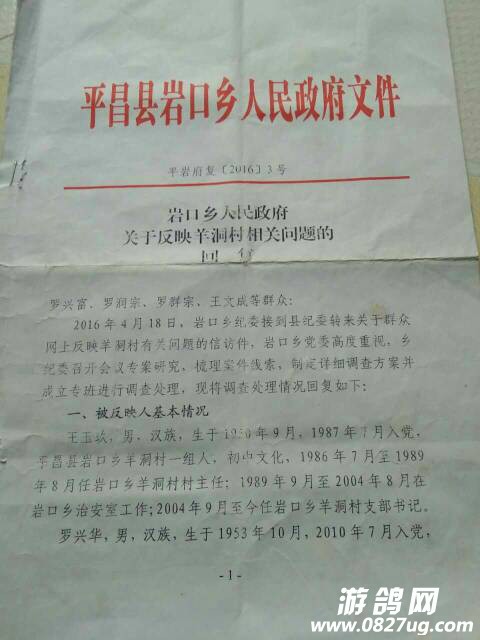 平昌县岩口乡人民政府文件
平岩府复〔2016〕3号
岩口乡人民政府
关于反映羊洞村相关问题的
回
罗兴富、罗润宗、罗群宗、王文成等群众：
2016年4月18日，岩口乡纪委接到县纪委转来关于群众
网上反映羊洞村有关问题的信访件，岩口乡党委高度重视，乡
纪委召开会议专案研究，梳理案件线索，制定详细调查方案并
成立专班进行调查处理，现将调查处理情况回复如下：
一、被反映人基本情况
王玉玖，男，汉族，生于1950年9月，1987年7月入党，
平昌县岩口乡羊洞村一组人，初中文化，1986年7月至1989
年8月任岩口乡羊洞村村主任；1989年9月至2004年8月在
岩口乡治安室工作；2004年9月至今任岩口乡羊洞村支部书记。
罗兴华，男，汉族，生于1953年10月，2010年7月入党，
-1-
游鸽网
www.0827ug.com